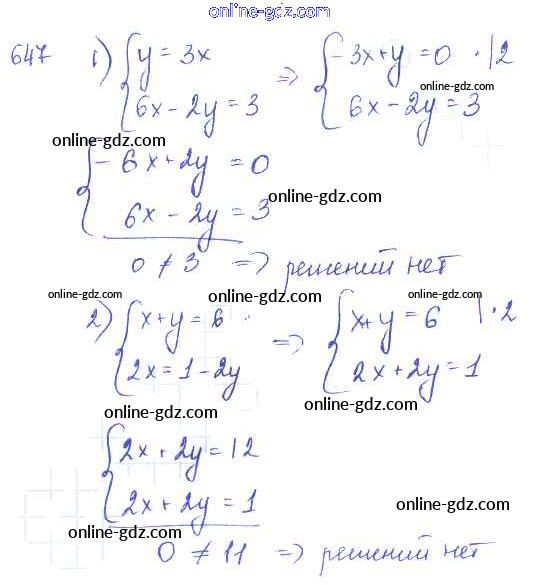 online-gdz.com
647 1) { y = 3x => { -3x + y = 0 · |2
{ 6x - 2y = 3 { 6x - 2y = 3
online-gdz.com online-gdz.com
{ -6x + 2y = 0
{ 6x - 2y = 3 online-gdz.com
0 ≠ 3 => решений нет
online-gdz.com online-gdz.com online-gdz.com
2) { x + y = 6 => { x + y = 6 | · 2
{ 2x = 1 - 2y { 2x + 2y = 1
online-gdz.com online-gdz.com
{ 2x + 2y = 12
{ 2x + 2y = 1 online-gdz.com
online-gdz.com
0 ≠ 11 => решений нет
online-gdz.com